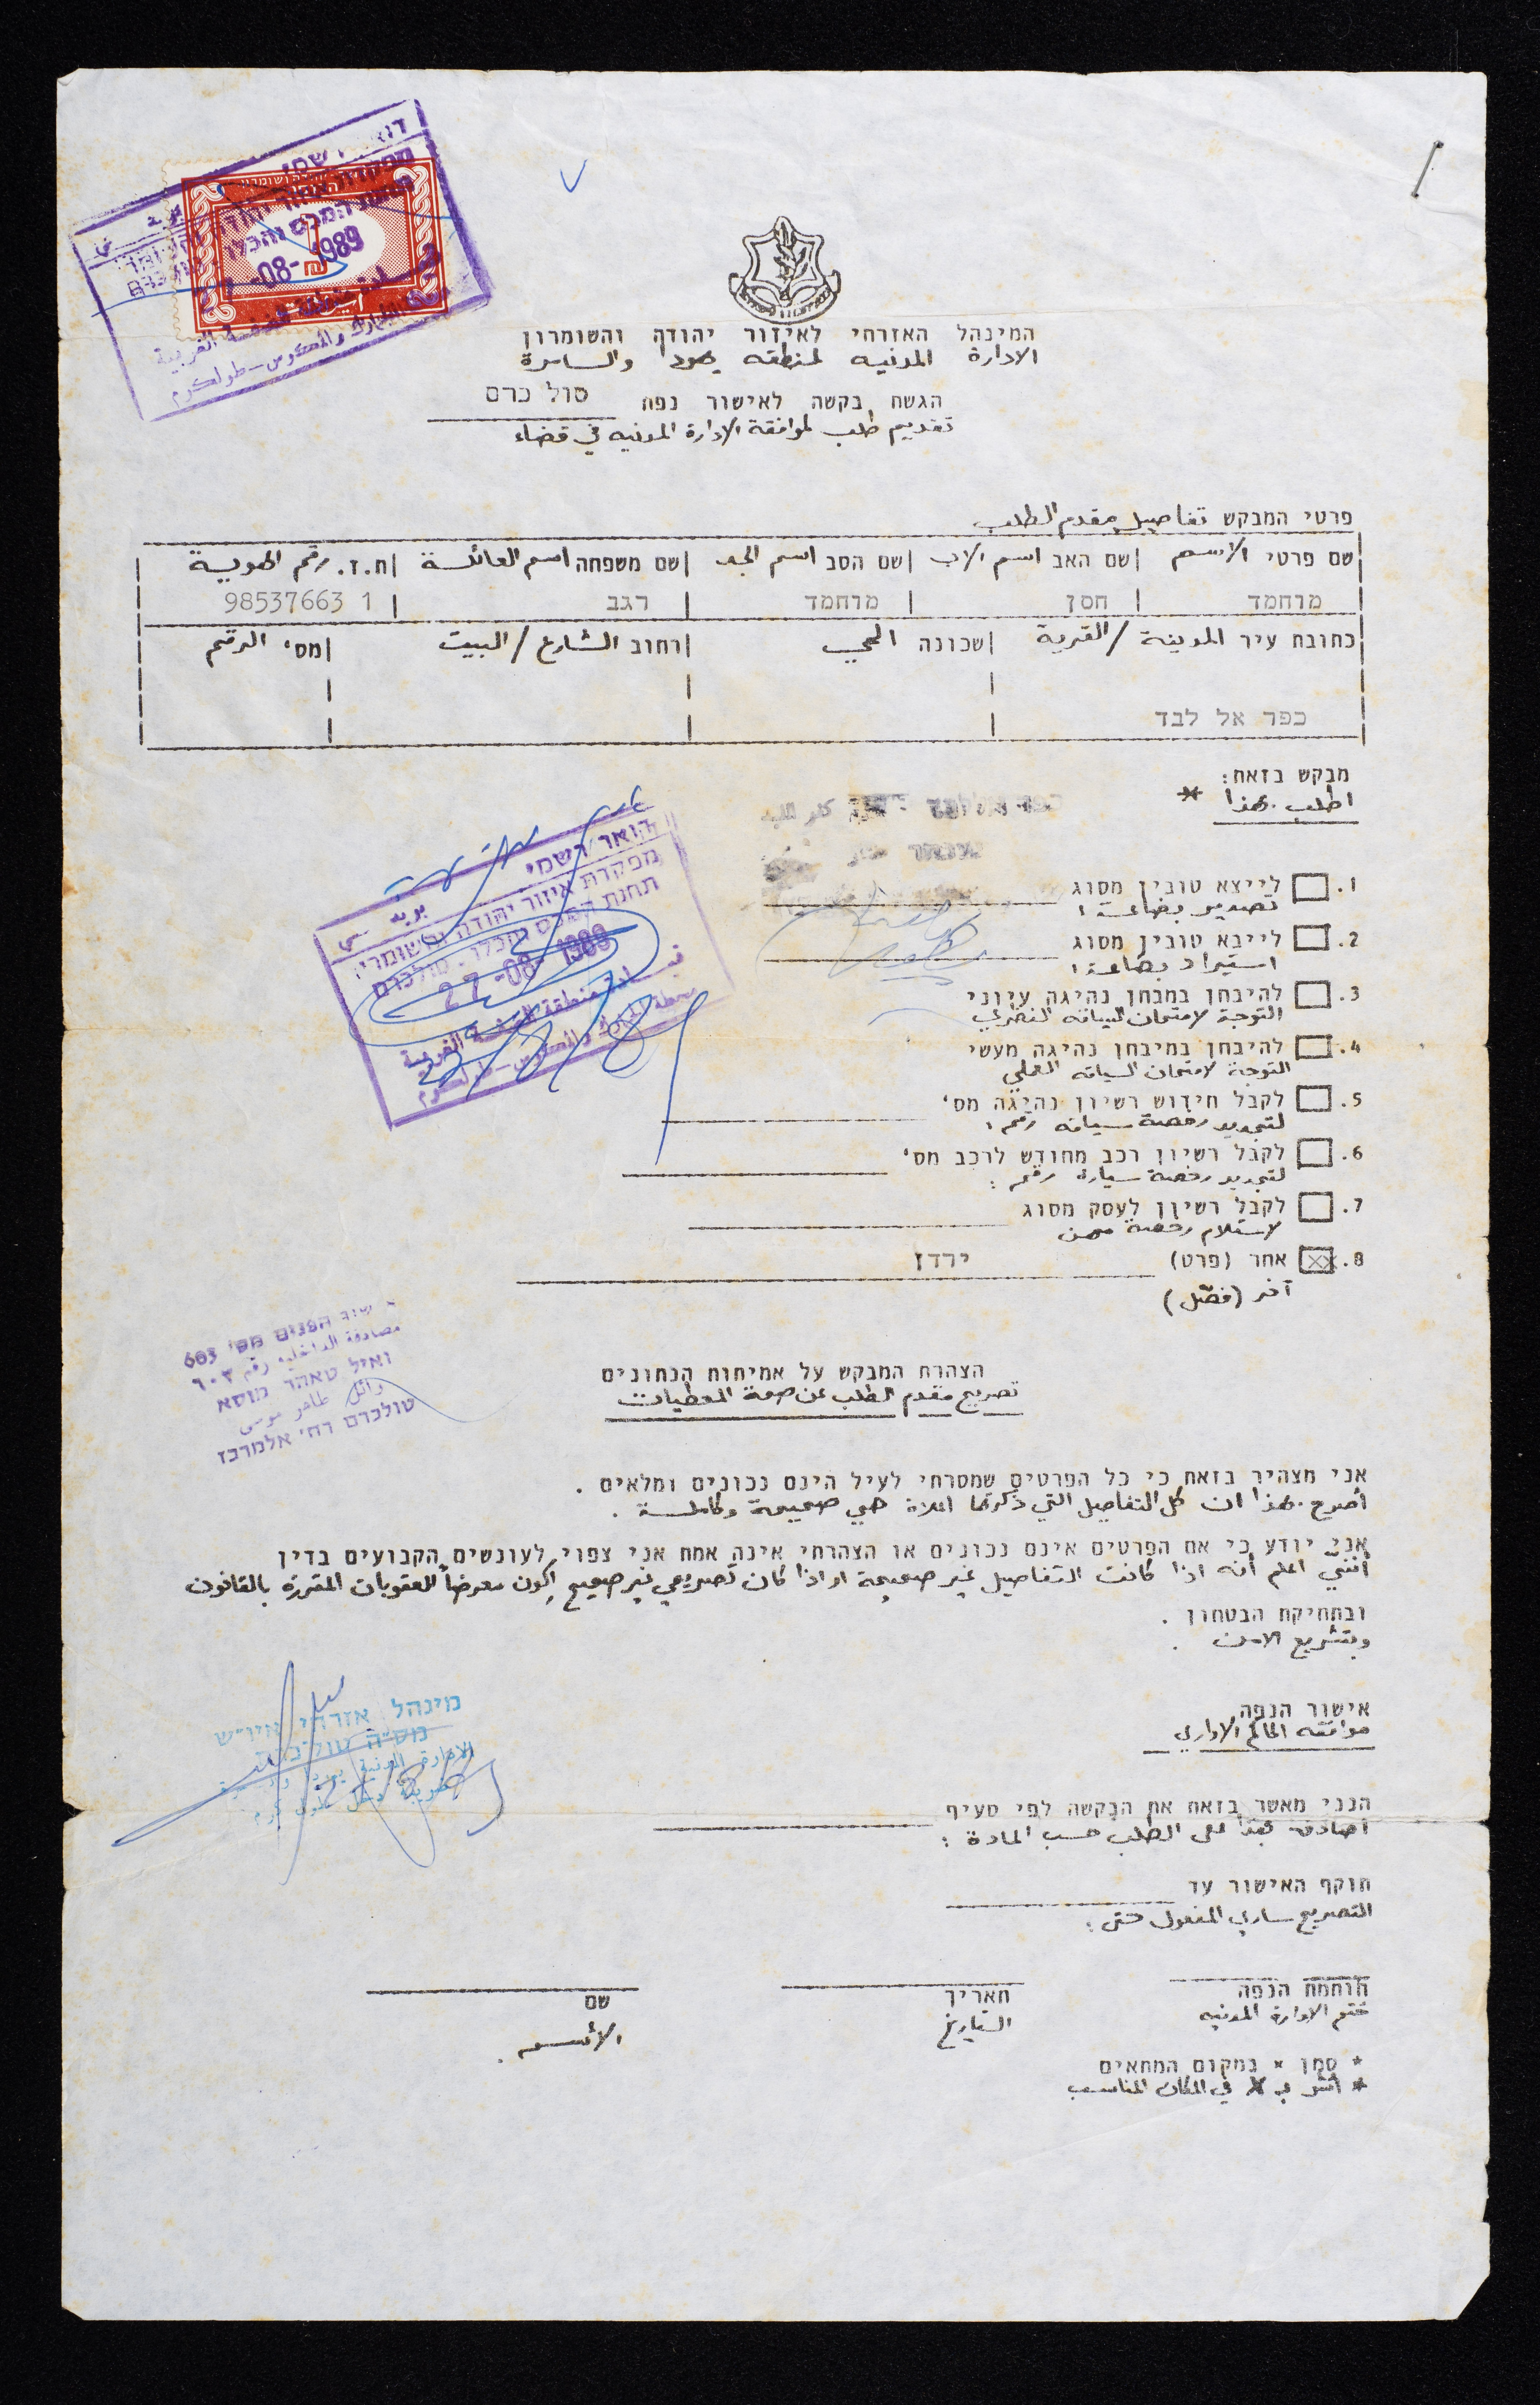 דואר רשמי
מפקדת אזור יהודה והשומרון
תחנת המכס והבלו
-08- 1989
قيادة منطقة الضفة الغربية
الجمارك والمكوس - طولكرم
המינהל האזרחי לאיזור יהודה והשומרון
الادارة المدنيه لمنطقه يهودا والسامرة
הגשת בקשה לאישור נפת טול כרם
تقديم طلب لموافقة الادارة المدنيه في قضاء
פרטי המבקש تفاصيل مقدم الطلب
שם פרטי الاسم שם האב اسم الاب שם הסב اسم الجد שם משפחה اسم العائلة ת.ז. رقم الهوية
מוחמד חסן מוחמד רגב 98537663 1
כתובת עיר المدينة / القرية שכונה الحي רחוב الشارع / البيت מס' الرقم
כפר אל לבד
מבקש בזאת:
اطلب بهذا *
1. לייצא טובין מסוג
تصدير بضاعة :
2. לייבא טובין מסוג
استيراد بضاعة :
3. להיבחן במבחן נהיגה עיוני
التوجة لامتحان السياقه النظري
4. להיבחן במיבחן נהיגה מעשי
التوجة لامتحان السياقه العملي
5. לקבל חידוש רשיון נהיגה מס'
لتجديد رخصة سياقه رقم :
6. לקבל רשיון רכב מחודש לרכב מס'
لتجديد رخصة سيارة رقم :
7. לקבל רשיון לעסק מסוג
لاستلام رخصة مهن
8. xx אחר (פרט) ירדן
آخر (فصّل)
דואר רשמי
מפקדת איזור יהודה והשומרון
תחנת המכס והבלו - טולכרם
27 -08- 1989
قيادة منطقة الضفة الغربية
محطة الجمارك والمكوس - طولكرم
22/8/89
אישור הפנים מס' 603
مصادقة الداخلية رقم ٦٠٣
ואיל טאהר מוסא
وائل طاهر موسى
טולכרם רח' אלמרכז
הצהרת המבקש על אמיתות הנתונים
تصريح مقدم الطلب عن صحة المعطيات
אני מצהיר בזאת כי כל הפרטים שמסרתי לעיל הינם נכונים ומלאים .
اصرح بهذا ان كل التفاصيل التي ذكرتها اعلاة هي صحيحة وكاملة .
אני יודע כי אם הפרטים אינם נכונים או הצהרתי אינה אמת אני צפוי לעונשים הקבועים בדין
أنني اعلم أنه اذا كانت التفاصيل غير صحيحة او اذا كان تصريحي غير صحيح اكون معرضاً للعقوبات المقررة بالقانون
ובתחיקת הבטחון .
وبتشريع الامن .
מינהל אזרחי איו"ש
מס"ה טול כרם
الادارة المدنية يهودا والسامرة
אישור הנפה
موافقه الحاكم الاداري
הנני מאשר בזאת את הבקשה לפי סעיף
اصادق بهذا على الطلب حسب المادة :
תוקף האישור עד
التصريح ساري المفعول حتى :
חותמת הנפה תאריך שם
ختم الادارة المدنيه التاريخ الاسم .
* סמן x במקום המתאים
* اشر بـ x في المكان المناسب